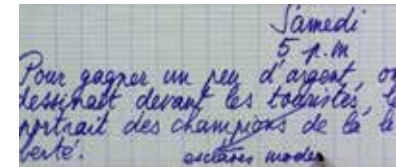 Samedi
5 p.m
Pour gagner un peu d'argent, on
dessinait devant les touristes, l
portrait des champions de la l
berté.
esclaves moder